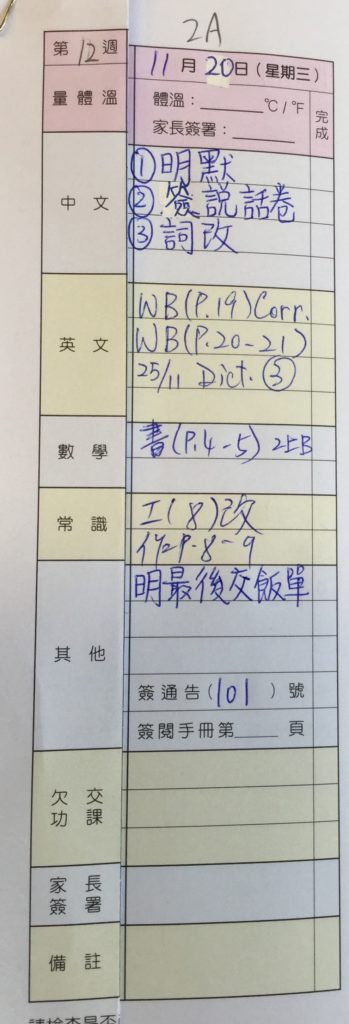 2A
第12週
11月20日(星期三)
量體溫
體溫：______℃/℉
家長簽署：______
完成
中文
①明默
②簽說話卷
③詞改
英文
WB(P.19)Corr.
WB(P.20-21)
25/11 Dict. ③
數學
書(P.4-5) 2上B
常識
工(8)改
作P.8-9
其他
明最後交飯單
簽通告(101)號
簽閱手冊第____頁
欠交功課
家長簽署
備註